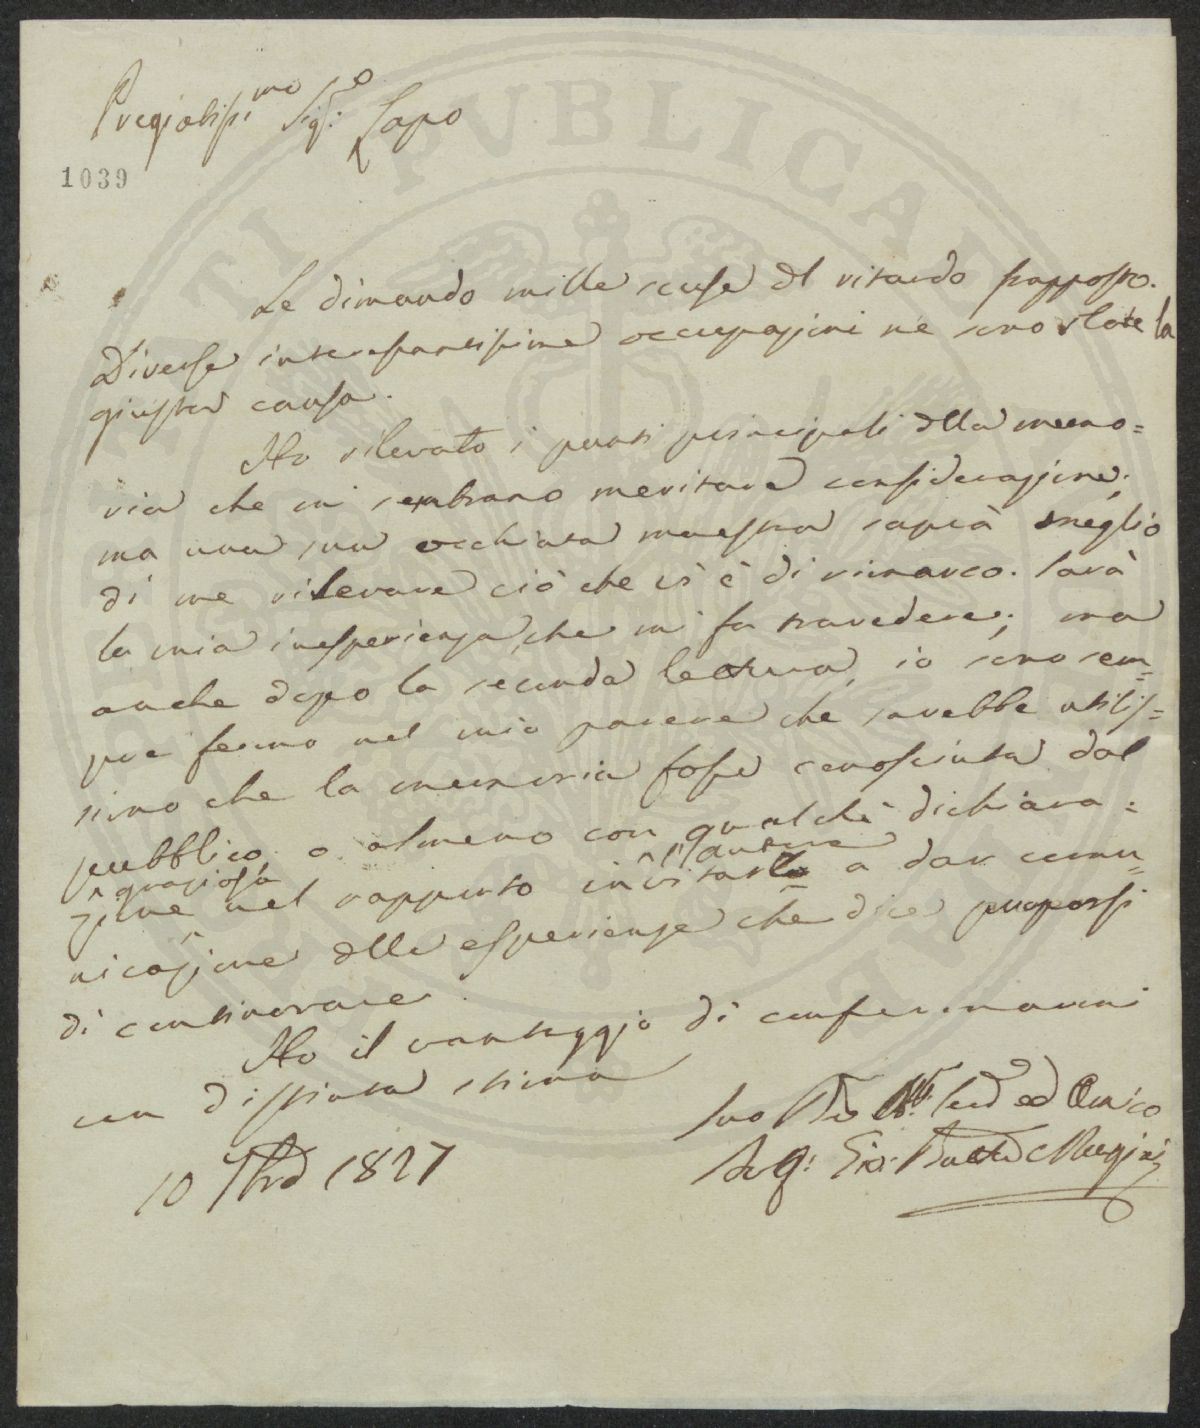 Pregiatissimo Sig.e Capo
1039
Le dimando mille scuse del ritardo frapposto.
Diverse interessantissime occupazioni ne sono state la
giusta causa.
Ho rilevato i punti principali della memo=
ria che mi sembrano meritare considerazione;
ma una sua occhiata maestra saprà meglio
di me rilevare ciò che vi è di rimarco. Sarà
la mia inesperienza, che mi fa travedere; ma
anche dopo la seconda lettura, io sono sem=
pre fermo nel mio parere che sarebbe utilis=
simo che la memoria fosse conosciuta dal
pubblico, o almeno con qualche dichiara=
zione graziosa nel rapporto invitare l'autore a dar comu=
nicazione delle esperienze che dice proporsi
di continovare.
Ho il vantaggio di confermarmi
con distinta stima
Suo ed Amico
Gio: Batta
10 1827